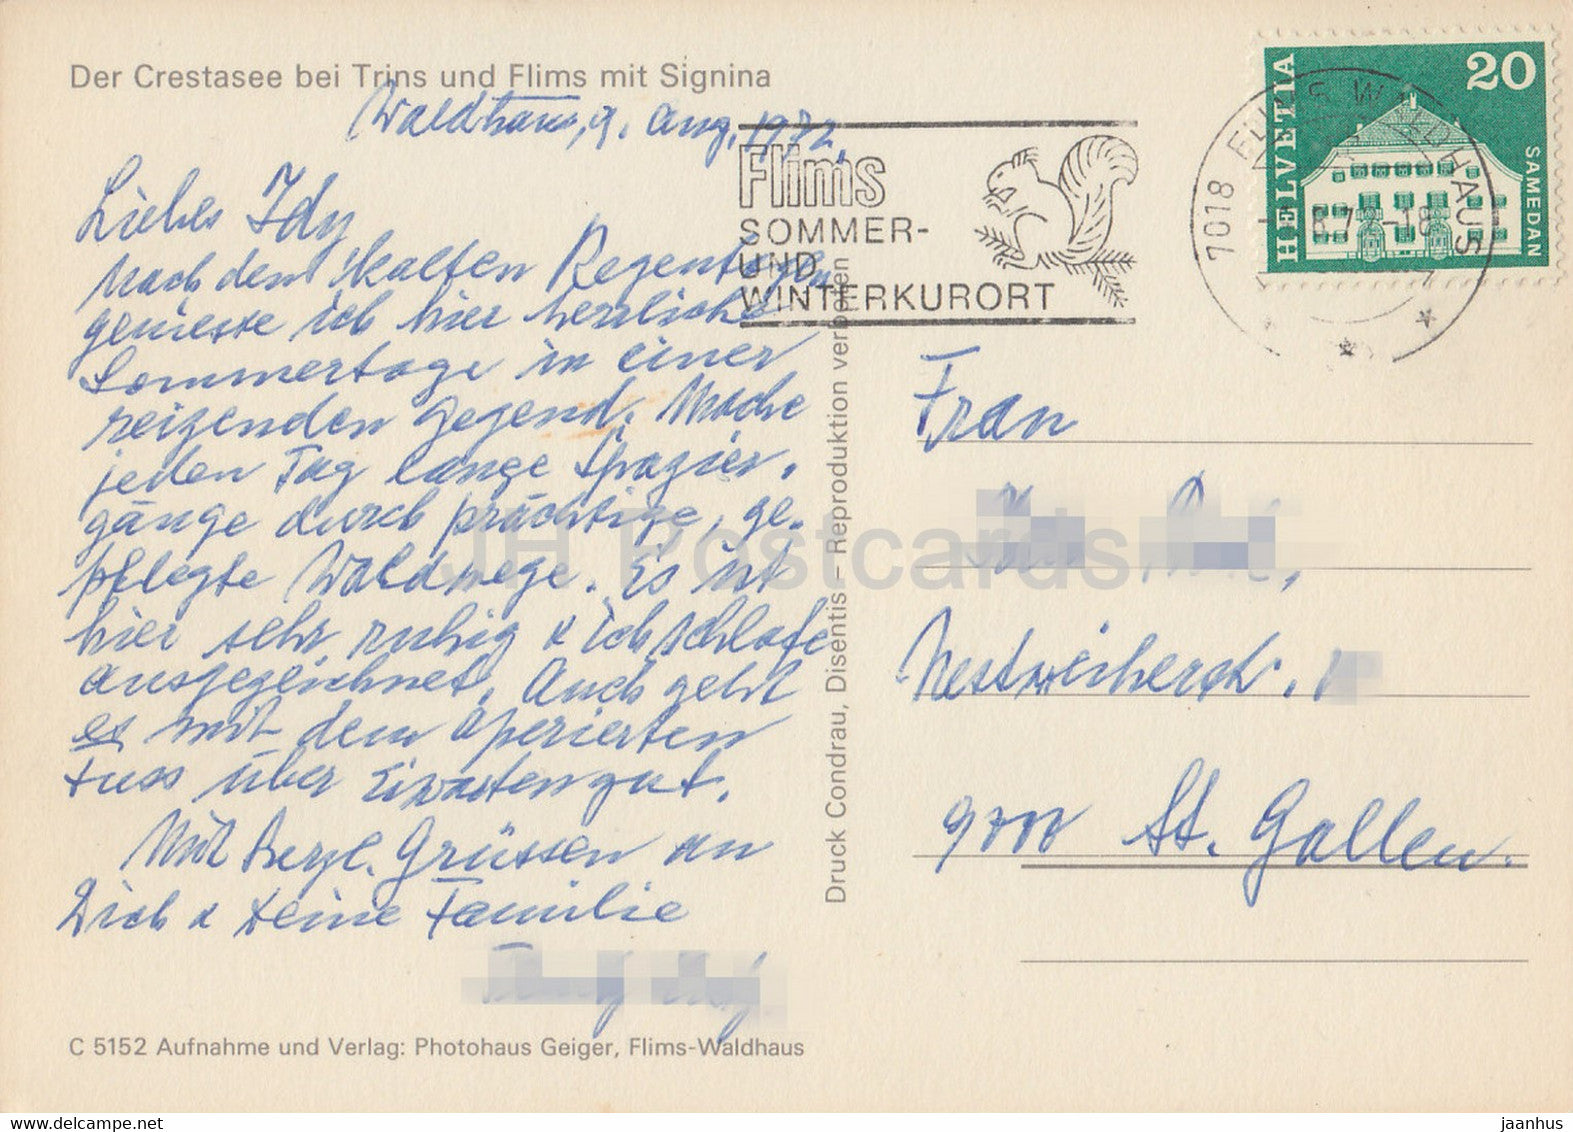 Der Crestasee bei Trins und Flims mit Signina
Waldhaus, 9. Aug. 1972.
Liebes Idy
Nach den kalten Regentagen
geniesse ich hier herrliche
Sommertage in einer
reizenden Gegend. Mache
jeden Tag lange Spazier-
gänge durch prächtige, ge-
pflegte Waldwege. Es ist
hier sehr ruhig & ich schlafe
ausgezeichnet. Auch geht
es mit dem operierten
Fuss über Erwarten gut.
Mit herzl. Grüssen an
Dich & Deine Familie
C 5152 Aufnahme und Verlag: Photohaus Geiger, Flims-Waldhaus
Druck Condrau, Disentis – Reproduktion verboten
Flims
SOMMER-
UND
WINTERKURORT
7018 FLIMS WALDHAUS
HELVETIA
20
SAMEDAN
Frau
9000 St. Gallen.
JH Postcards
www.delcampe.net
jaanhus